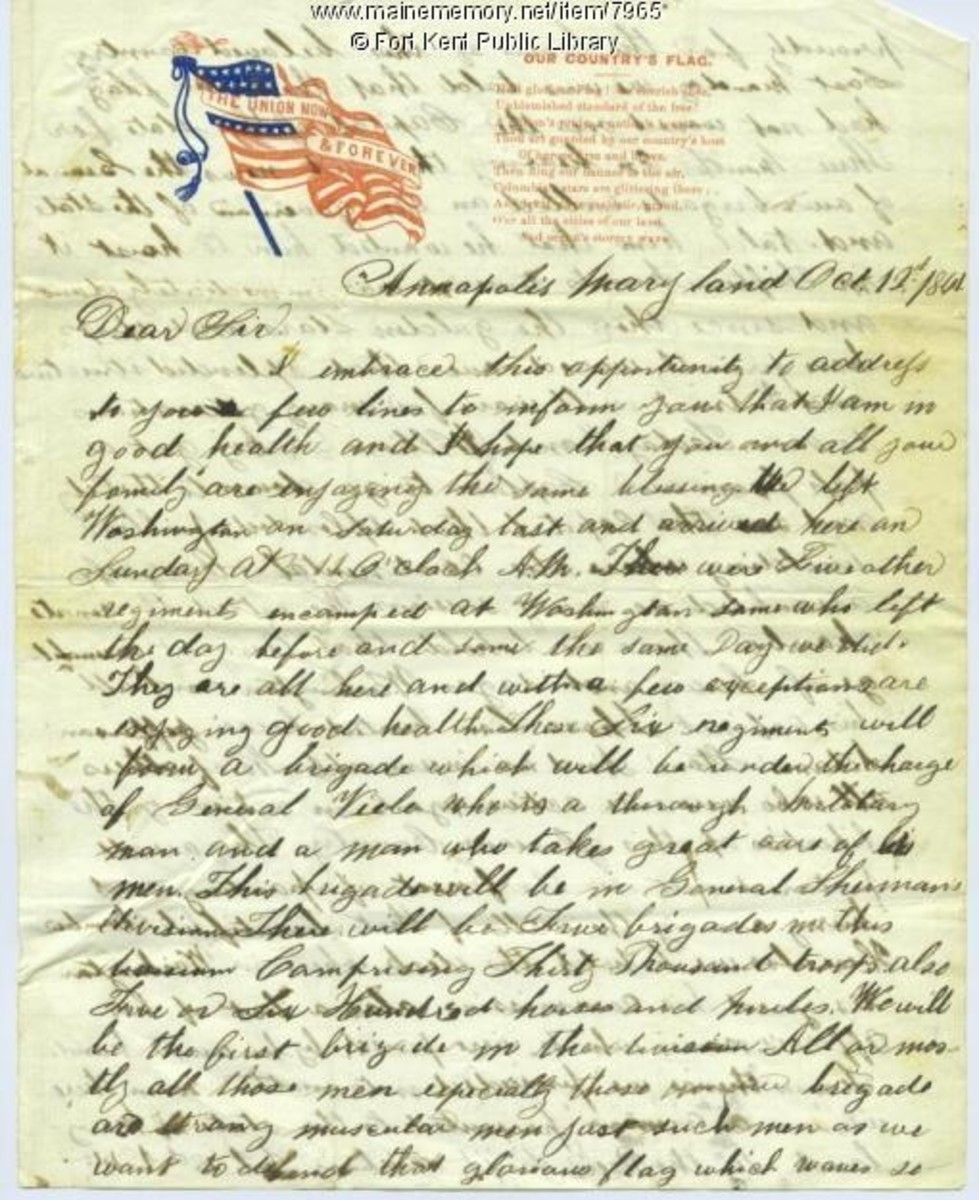 www.mainememory.net/item/7965
© Fort Kent Public Library
OUR COUNTRY'S FLAG.
THE UNION NOW
& FOREVER
Unblemished standard of the free!
Thou art guarded by our country's host
Then fling our banner to the air,
Columbia's stars are glittering there
O'er all the cities of our land,
Annapolis Mary land Oct 12" 1861
Dear Sir
I embrace this opportunity to address
to you a few lines to inform you that I am in
good health and I hope that you and all your
family are enjoying the same blessing We left
Washington on Saturday last and arrived here on
Sunday at O'clock A.M. There were Five other
regiments encamped at Washington some who left
the day before and some the same Day we did.
They are all here and with a few exceptions are
enjoying good health These Six regiments will
form a brigade which will be under the charge
of General Viele who is a thorough military
man and a man who takes great care of his
men. This brigade will be in General Shermans
division There will be Five brigades in this
division Comprising Thirty Thousand troops also
Five or Six Hundred horses and Mules. We will
be the first brigade in the division All or mos
tly all those men especially those brigade
are strong muscular men just such men as we
want to defend that glorious flag which waves so